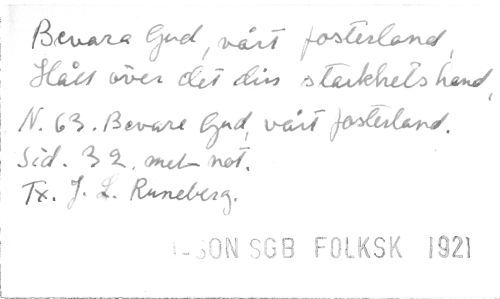 Bevara Gud, vårt fosterland,
Håll över det din starkhets hand,
N. 63. Bevare Gud, vårt fosterland.
Sid. 32. mel. not.
Tx. J. L. Runeberg.
SON SGB FOLKSK 1921